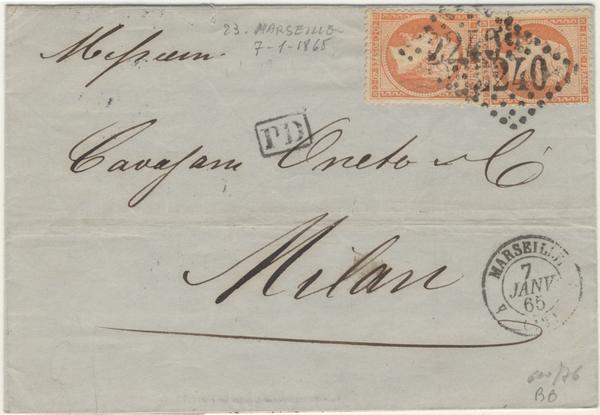 23. MARSEILLE
7-1-1865
Messieurs
2240
2240
PD
Cavajani Oneto & C.
Milan
MARSEILLE
7
JANV
65
(12)
BB